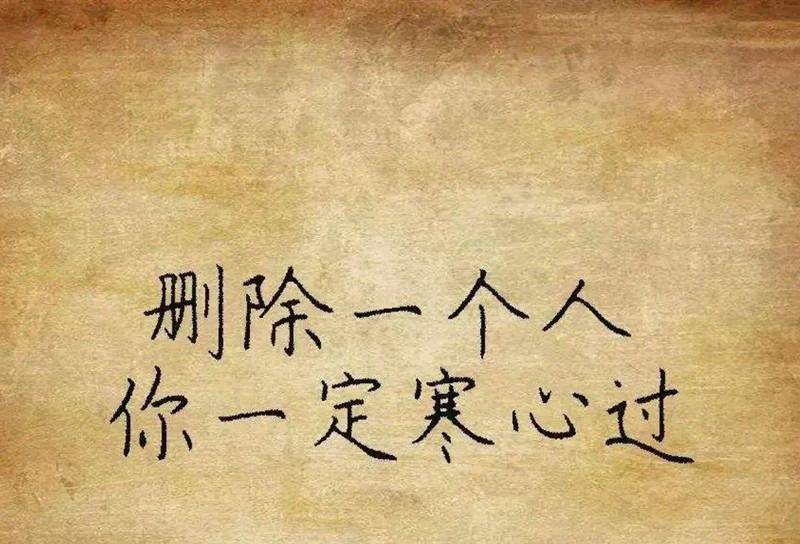 删除一个人
你一定寒心过